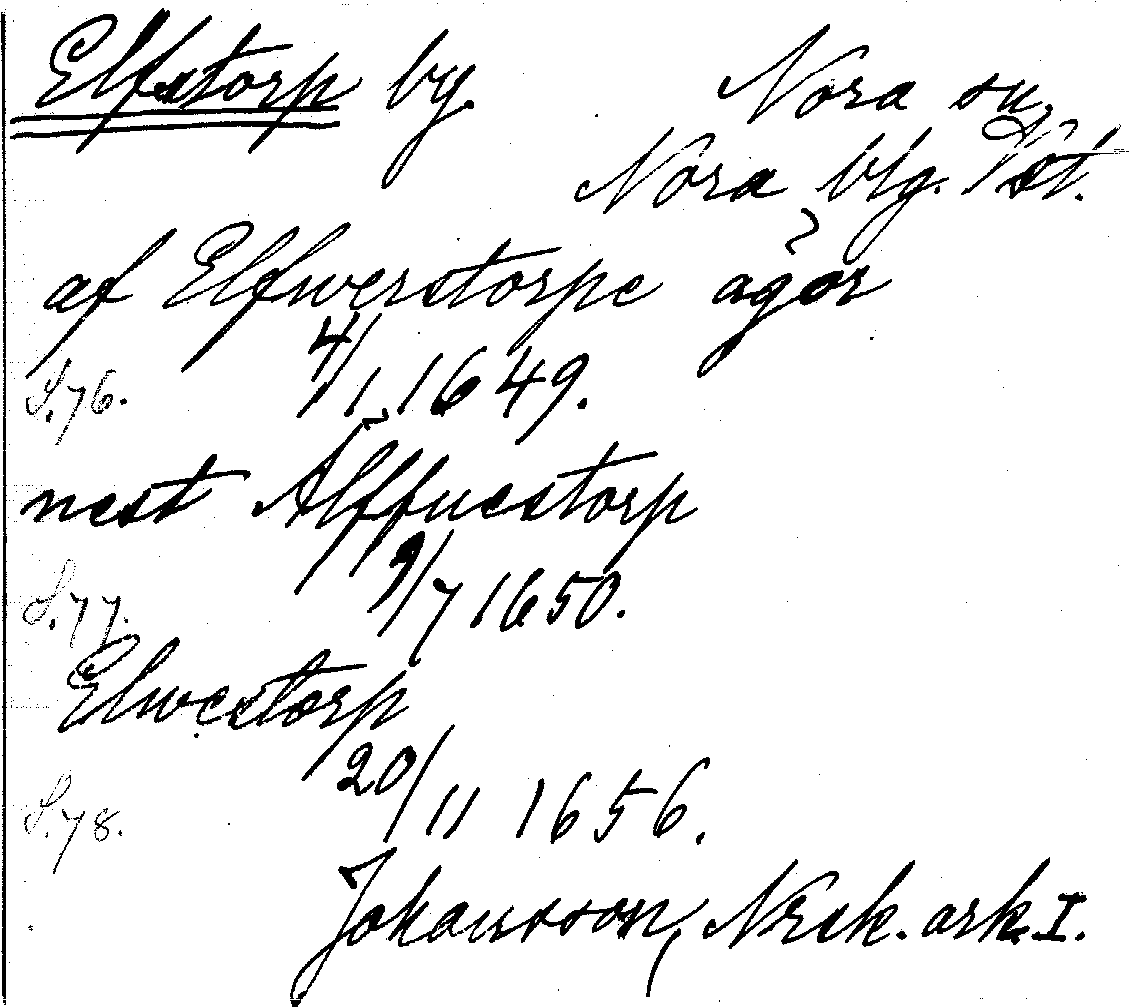 Elfstorp by. Nora sn,
Nora blg. Vst.
af Elfwerstorpe ägor
4/1 1649.
S.76.
nest Älffuestorp
9/7 1650.
S.77.
Elwestorp
20/11 1656.
S.78.
Johansson, Nrck. ark. I.